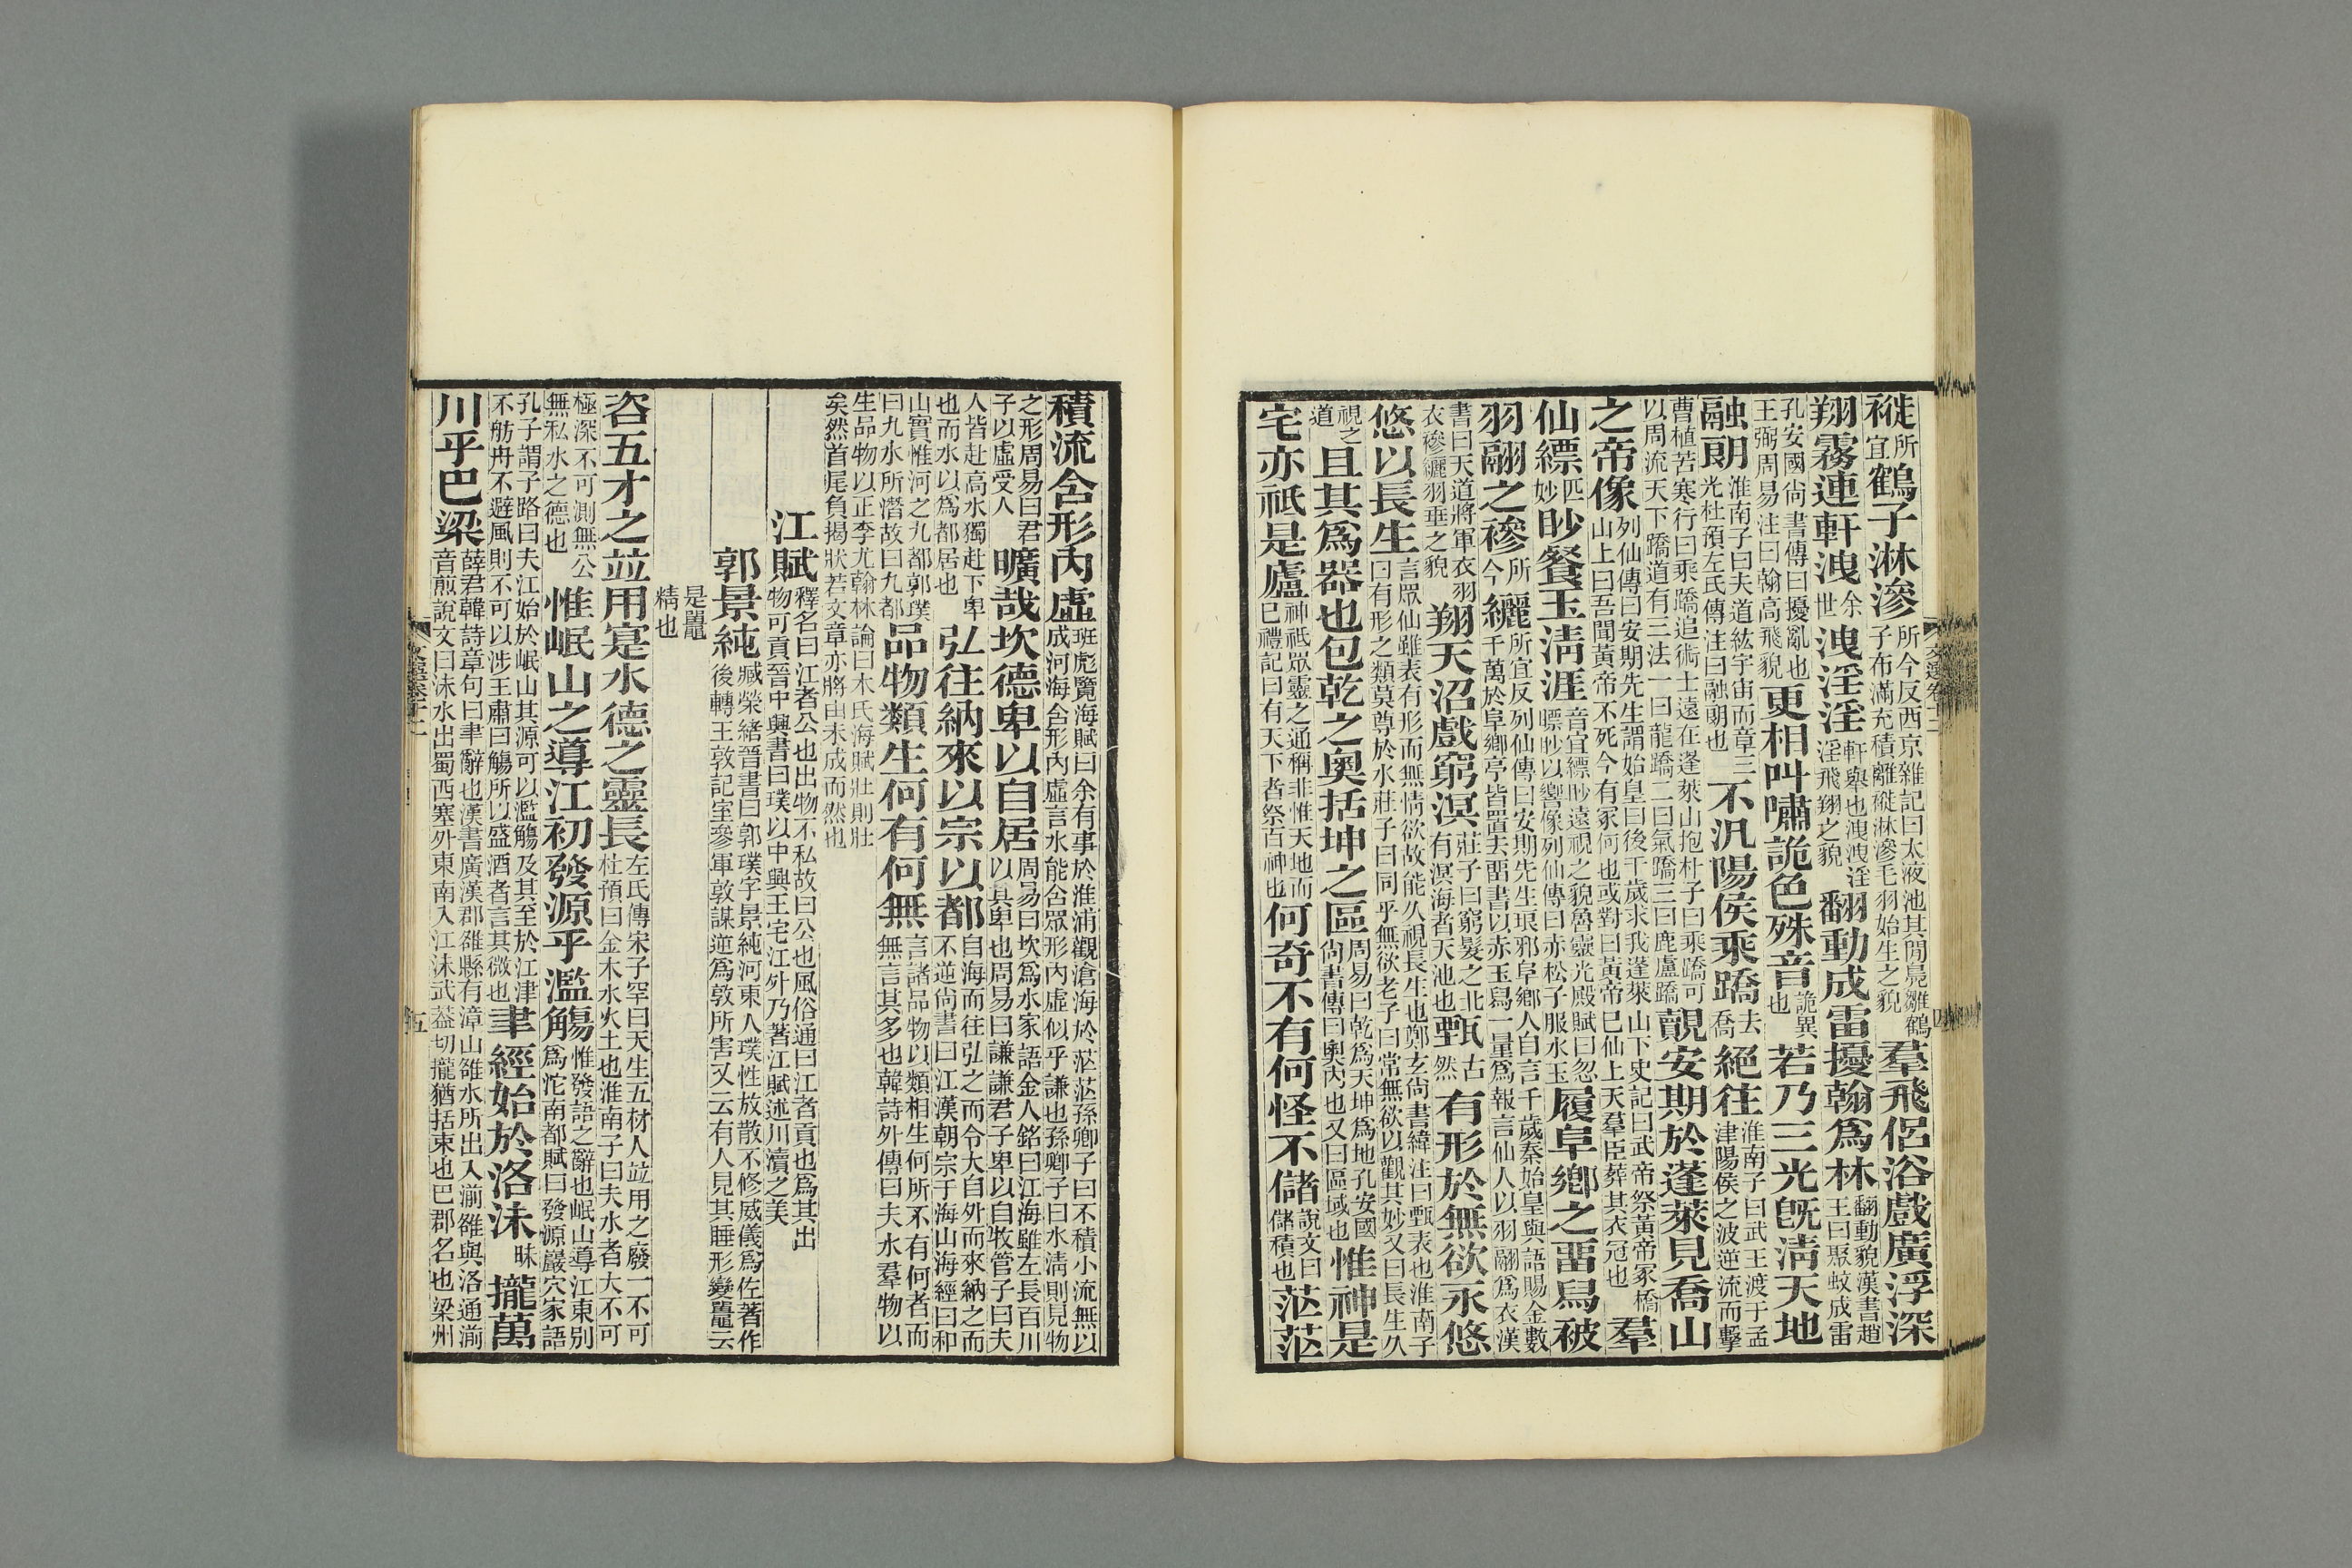 褷所宜鶴子淋滲所今反西京雜記曰太液池其閒鳧雛鶴子布滿充積離褷淋滲毛羽始生之貌羣飛侶浴戲廣浮深
翔霧連軒洩余世洩淫淫軒舉也洩洩淫淫飛翔之貌翻動成雷擾翰爲林翻動貌漢書趙王曰聚蚊成雷
孔安國尙書傳曰擾亂也王弼周易注曰翰高飛貌更相叫嘯詭色殊音詭異也若乃三光旣淸天地
融朗淮南子曰夫道紘宇宙而章三光杜預左氏傳注曰融朗也不汎陽侯乘蹻去喬絕往淮南子曰武王渡于孟津陽侯之波逆流而擊
曹植苦寒行曰乘蹻追術士遠在蓬萊山抱朴子曰乘蹻可以周流天下蹻道有三法一曰龍蹻二曰氣蹻三曰鹿盧蹻覿安期於蓬萊見喬山
之帝像列仙傳曰安期先生謂始皇曰後千歲求我蓬萊山下史記曰武帝祭黃帝冢橋山上曰吾聞黃帝不死今有冢何也或對曰黃帝已仙上天羣臣葬其衣冠也羣
仙縹匹妙眇餐玉淸涯音宜縹眇遠視之貌魯靈光殿賦曰忽瞟眇以響像列仙傳曰赤松子服水玉履阜鄉之畱舄被
羽翮之襂所今纚所宜反列仙傳曰安期先生琅邪阜鄉人自言千歲秦始皇與語賜金數千萬於阜鄉亭皆置去畱書以赤玉舄一量爲報言仙人以羽翮爲衣漢
書曰天道將軍衣羽衣襂纚羽垂之貌翔天沼戲窮溟莊子曰窮髮之北有溟海者天池也甄古然有形於無欲永悠
悠以長生言眾仙雖表有形而無情欲故能久視長生也鄭玄尙書緯注曰甄表也淮南子曰有形之類莫尊於水莊子曰同乎無欲老子曰常無欲以觀其妙又曰長生久
視之道且其爲器也包乾之奧括坤之區周易曰乾爲天坤爲地孔安國尙書傳曰奧內也又曰區域也惟神是
宅亦祇是廬神祇眾靈之通稱非惟天地而已禮記曰有天下者祭百神也何奇不有何怪不儲說文曰儲積也茫茫
積流含形內虛班彪覽海賦曰余有事於淮浦觀滄海於茫茫孫卿子曰不積小流無以成河海含形內虛言水能含眾形內虛似乎謙也孫卿子曰水淸則見物
之形周易曰君子以虛受人曠哉坎德卑以自居周易曰坎爲水家語金人銘曰江海雖左長百川以其卑也周易曰謙謙君子卑以自牧管子曰夫
人皆赴高水獨赴下卑也而水以爲都居也弘往納來以宗以都自海而往弘之而令大自外而來納之而不逆尙書曰江漢朝宗于海山海經曰和
山實惟河之九都郭璞曰九水所潛故曰九都品物類生何有何無言諸品物以類相生何所不有何者而無言其多也韓詩外傳曰夫水羣物以
生品物以正李尤翰林論曰木氏海賦壯則壯矣然首尾負揭狀若文章亦將由未成而然也
江賦釋名曰江者公也出物不私故曰公也風俗通曰江者貢也爲其出物可貢晉中興書曰璞以中興王宅江外乃著江賦述川瀆之美
郭景純臧榮緒晉書曰郭璞字景純河東人璞性放散不修威儀爲佐著作後轉王敦記室參軍敦謀逆爲敦所害又云有人見其睡形變鼉云
是鼉精也
咨五才之竝用寔水德之靈長左氏傳宋子罕曰天生五材人竝用之廢一不可杜預曰金木水火土也淮南子曰夫水者大不可
極深不可測無公無私水之德也惟岷山之導江初發源乎濫觴惟發語之辭也岷山導江東別爲沱南都賦曰發源巖穴家語
孔子謂子路曰夫江始於岷山其源可以濫觴及其至於江津不舫舟不避風則不可以涉王肅曰觴所以盛酒者言其微也聿經始於洛沬昧攏萬
川乎巴梁薛君韓詩章句曰聿辭也漢書廣漢郡雒縣有漳山雒水所出入湔雒與洛通湔音煎說文曰沬水出蜀西塞外東南入江沬武葢切攏猶括束也巴郡名也梁州
文選卷十二
四
五